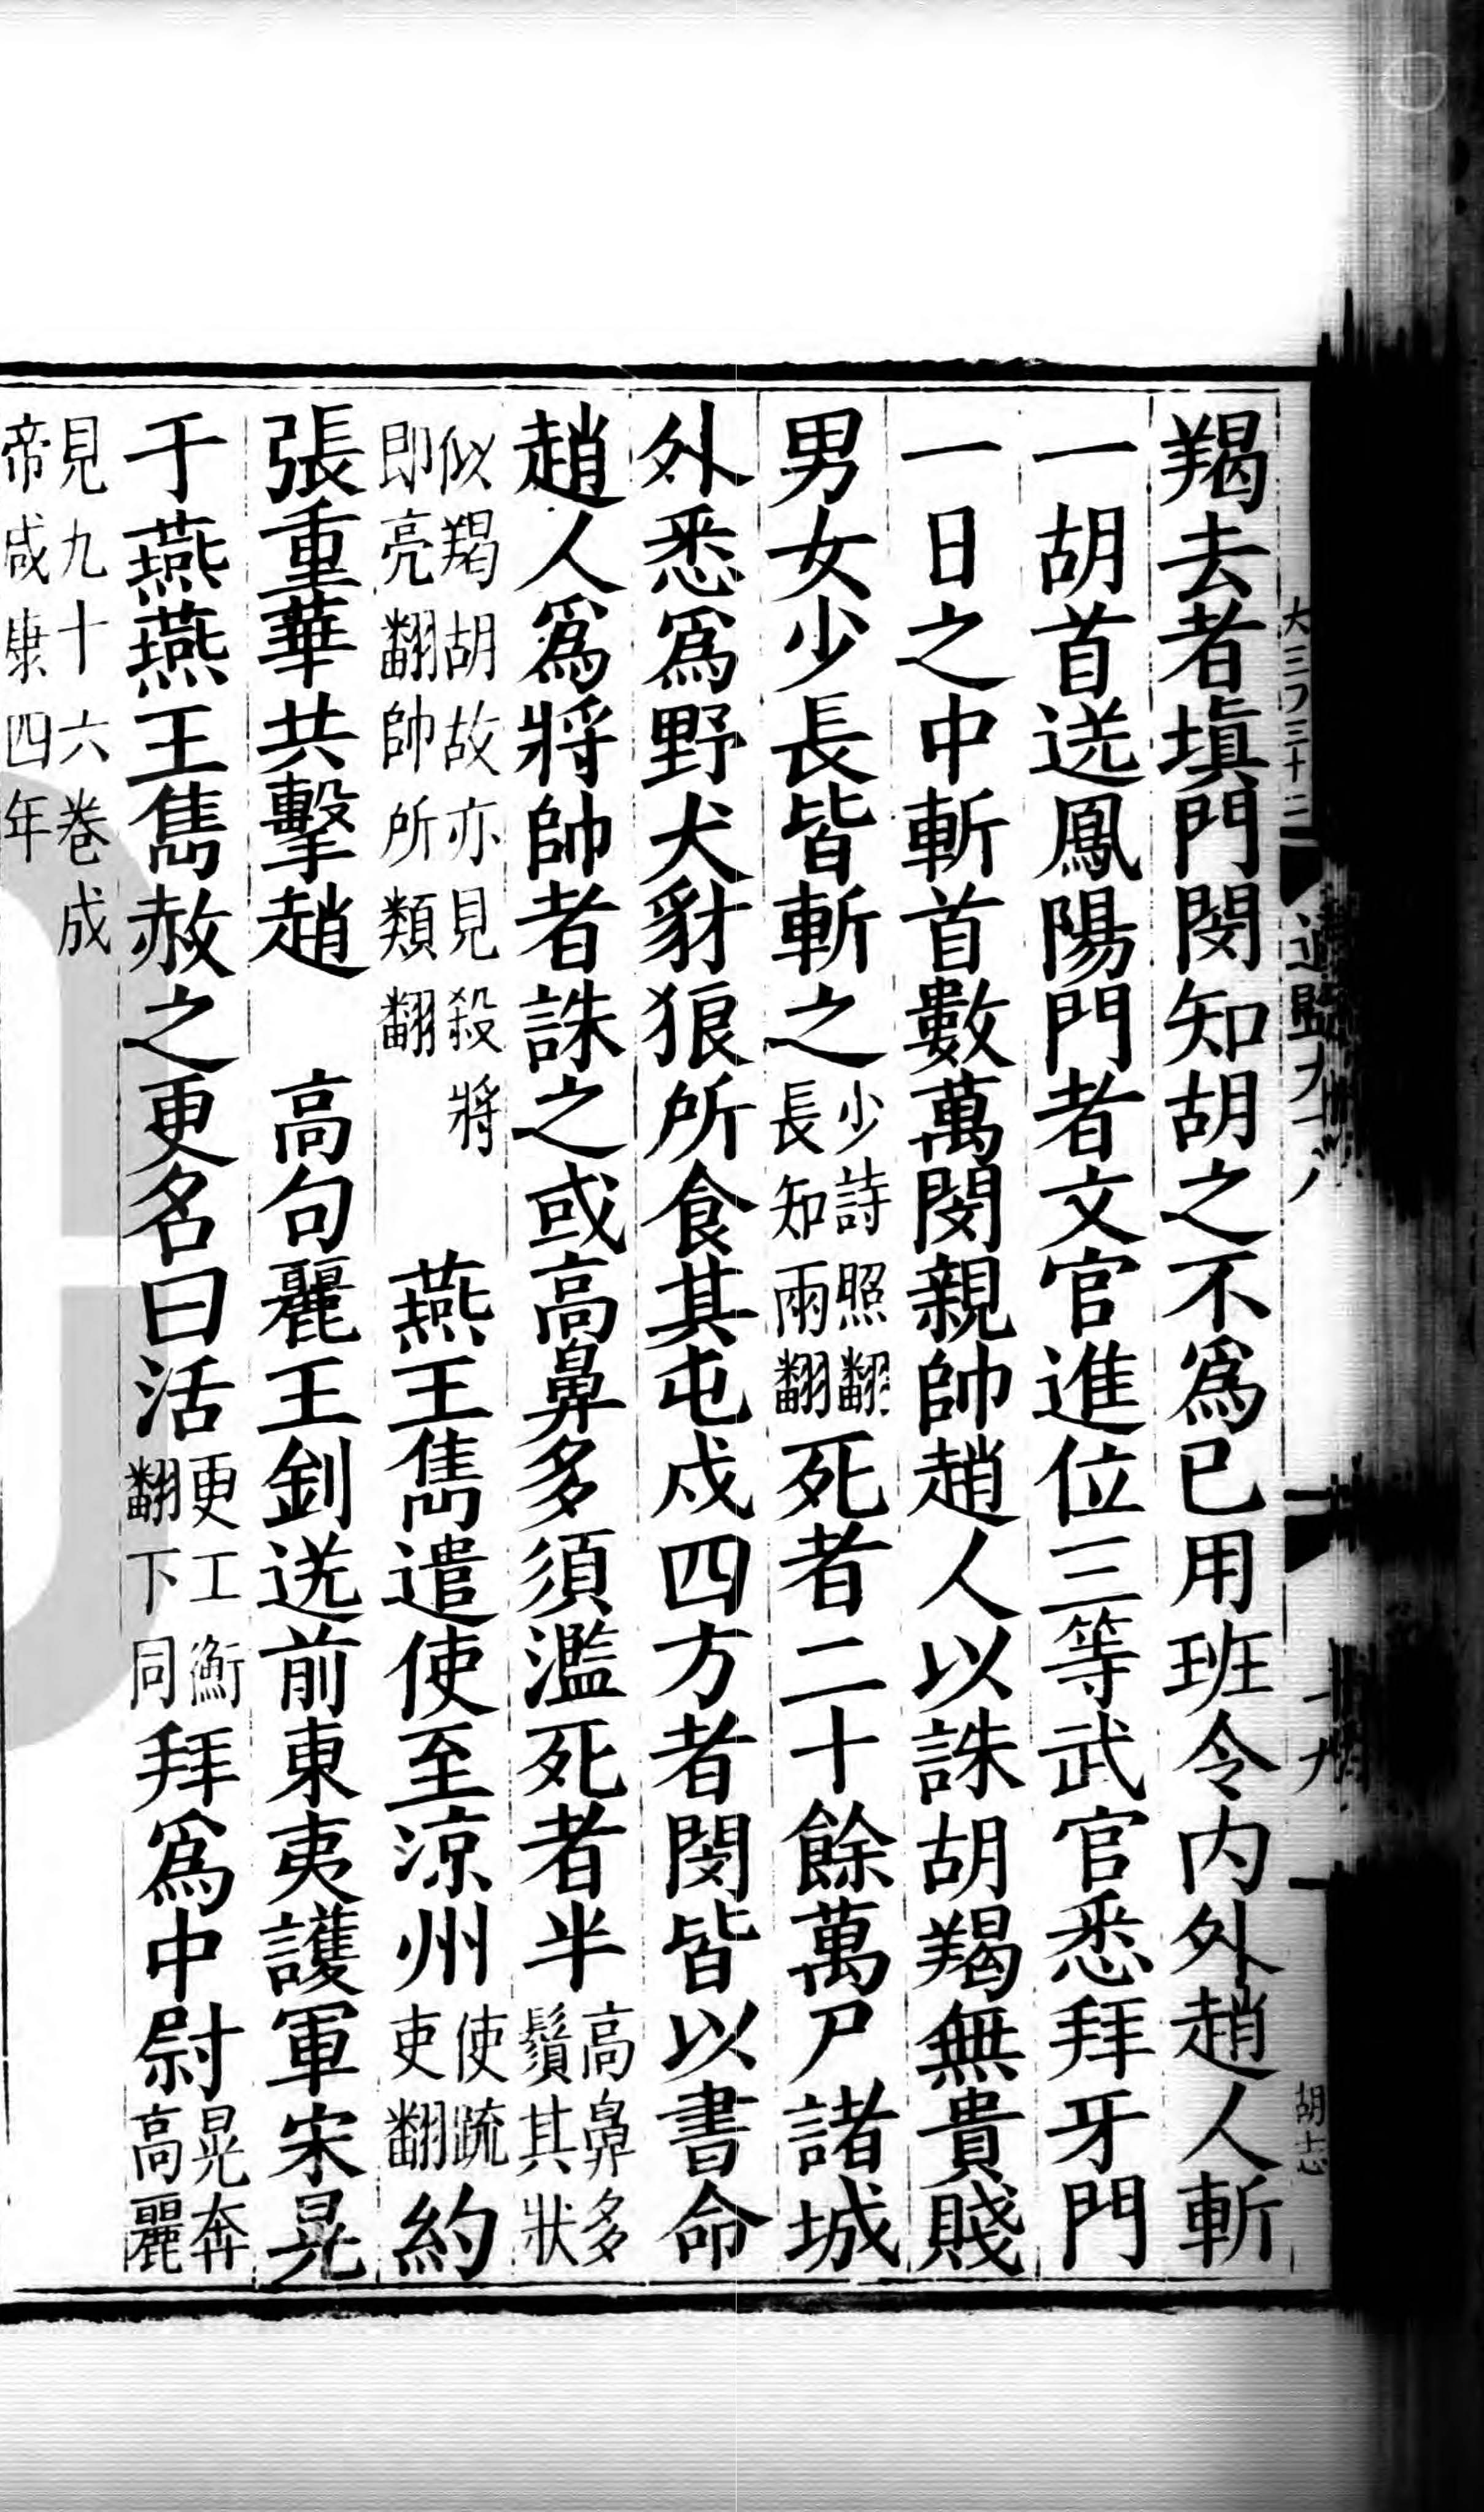 羯去者塡門閔知胡之不爲已用班令内外趙人斬
一胡首送鳳陽門者文官進位三等武官悉拜牙門
一日之中斬首數萬閔親帥趙人以誅胡羯無貴賤
男女少長皆斬之少詩照翻長知兩翻死者二十餘萬尸諸城
外悉爲野犬豺狼所食其屯戍四方者閔皆以書命
趙人爲將帥者誅之或高鼻多須濫死者半高鼻多鬚其狀
似羯胡故亦見殺將即亮翻帥所類翻　燕王雋遣使至涼州使疏吏翻約
張重華共擊趙　高句麗王釗送前東夷護軍宋晃
于燕燕王雋赦之更名曰活更工衡翻下同拜爲中尉晃奔高麗
見九十六卷成帝咸康四年